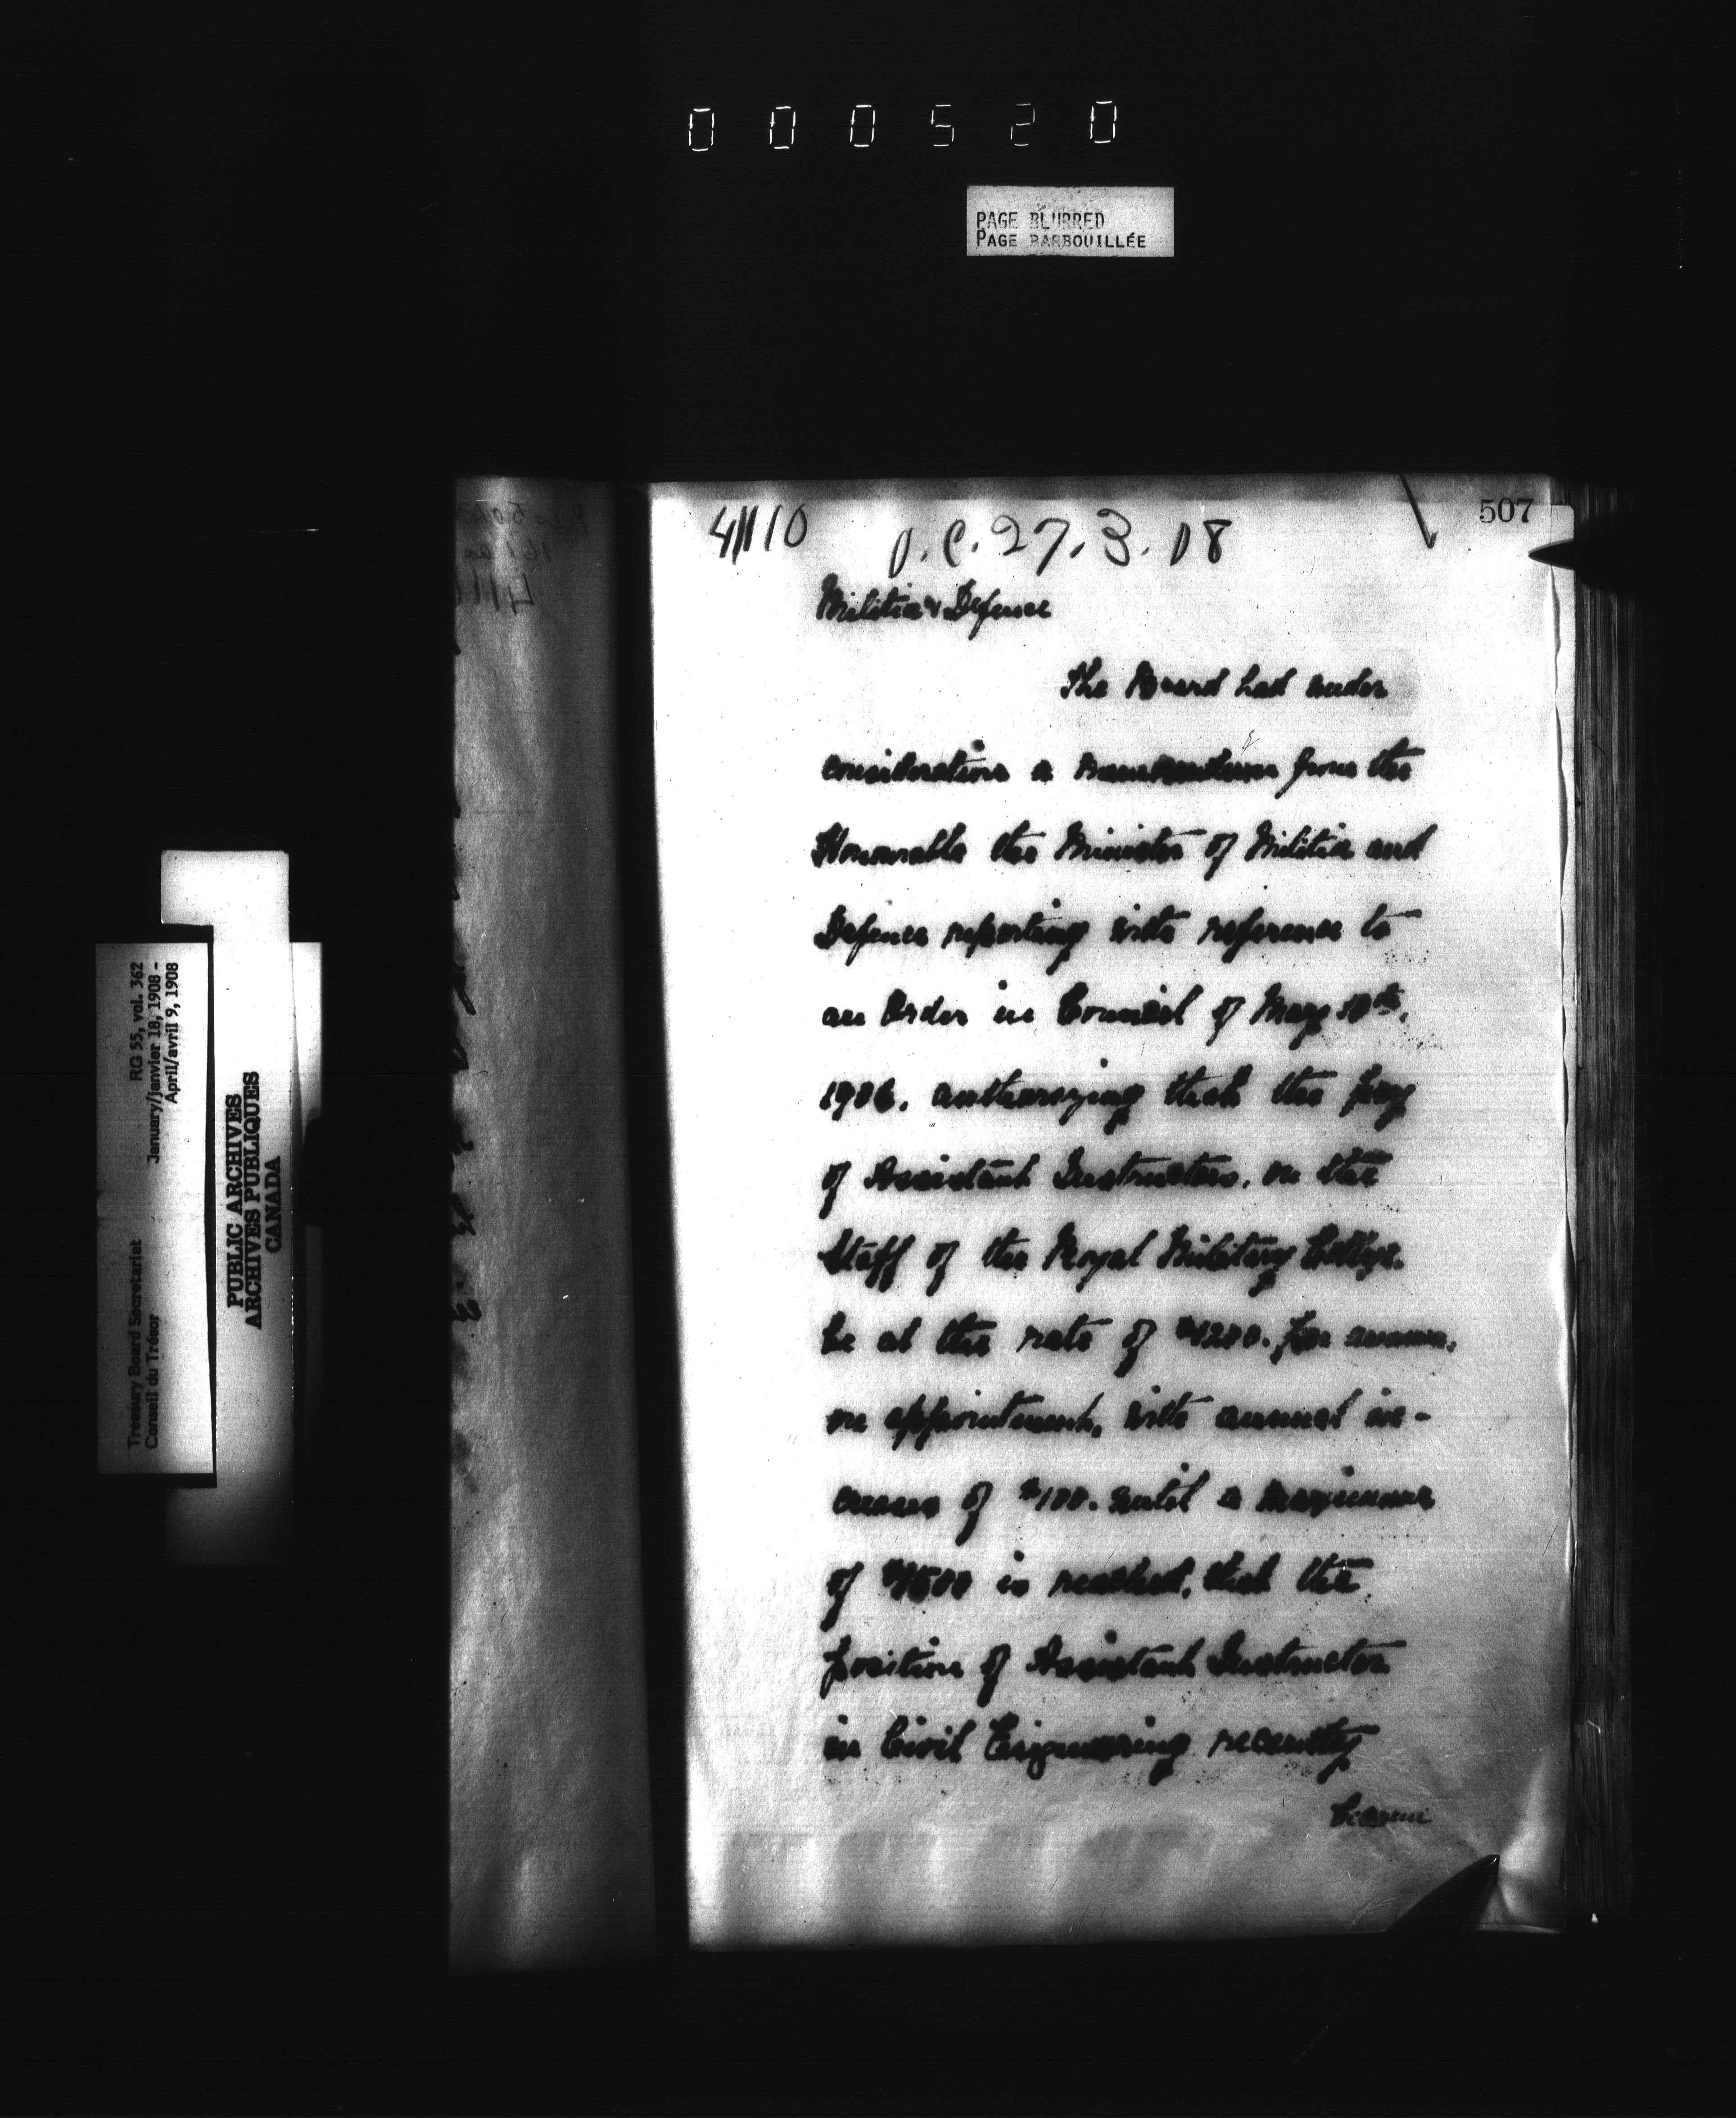 000520
PAGE BLURRED
PAGE BARBOUILLÉE
507
41110 O.C. 27.3.08
Militia & Defence
The Board had under
consideration a memorandum from the
Honourable the Minister of Militia and
Defence reporting with reference to
an Order in Council of May 10th,
1906. authorizing that the pay
of Assistant Instructors, on the
Staff of the Royal Military College.
be at the rate of $1200. per annum.
on appointment, with annual in-
creases of $100. until a maximum
of $1500 is reached, that the
position of Assistant Instructor
in Civil Engineering recently
became
RG 55, vol. 362
January/janvier 18, 1908 -
April/avril 9, 1908
Treasury Board Secretariat
Conseil du Trésor
PUBLIC ARCHIVES
ARCHIVES PUBLIQUES
CANADA